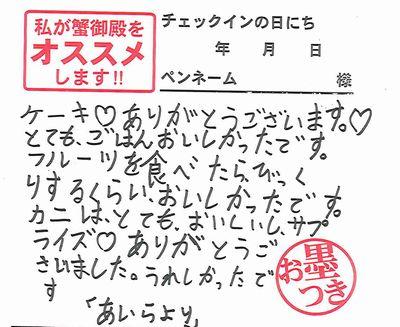 私が蟹御殿を
オススメ
します!!
チェックインの日にち
年 月 日
ペンネーム 様
ケーキ♡ありがとうございます。♡
とても、ごはんおいしかったです。
フルーツを食べたら、びっく
りするくらい、おいしかったです。
カニは、とても、おいしいし、サプ
ライズ♡ありがとうご
ざいました。うれしかったで
す
「あいらより」
お墨
つき